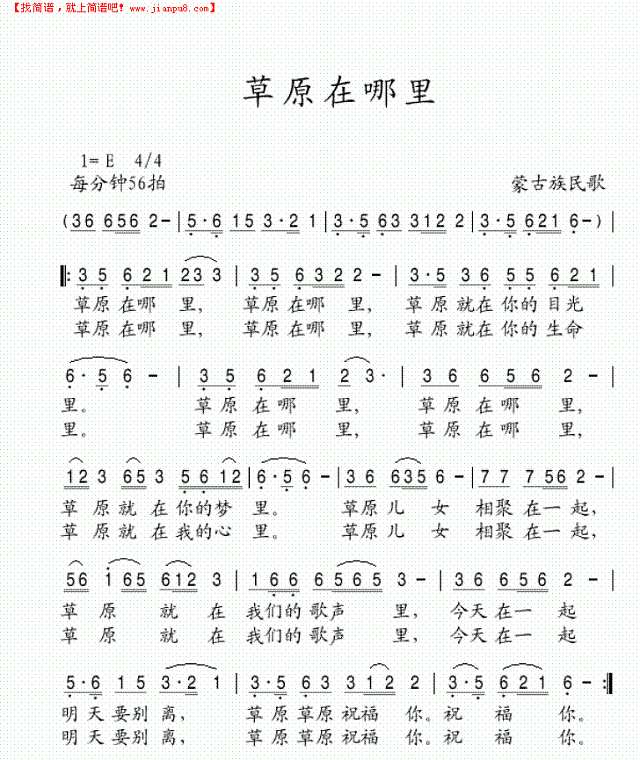 【找简谱，就上简谱吧！www.jianpu8.com】
草原在哪里
1= E 4/4
每分钟56拍 蒙古族民歌
(36 656 2-|5·6 15 3·2 1|3·5 63 312 2|3·5 621 6-)|
‖: 35 621 23 3|35 632 2-|3·5 36 55 621|
草原在哪 里， 草原在哪 里， 草原就在你的目光
草原在哪 里， 草原在哪 里， 草原就在你的生命
6·5 6-|35 621 2 3·|36 656 2-|
里。 草原在哪 里， 草原在哪 里，
里。 草原在哪 里， 草原在哪 里，
12 3 65 3 56 12|6·5 6-|36 635 6-|77 756 2-|
草原就在你的梦 里。 草原儿 女 相聚在一起，
草原就在我的心 里。 草原儿 女 相聚在一起，
56 165 612 3|166 6565 3-|36 656 2-|
草 原 就 在 我们的歌声 里，今天在一 起
草 原 就 在 我们的歌声 里，今天在一 起
5·6 15 3·2 1|3·5 63 312 2|3·5 621 6-:‖
明天要别 离， 草原草原祝福 你。祝 福 你。
明天要别 离， 草原草原祝福 你。祝 福 你。